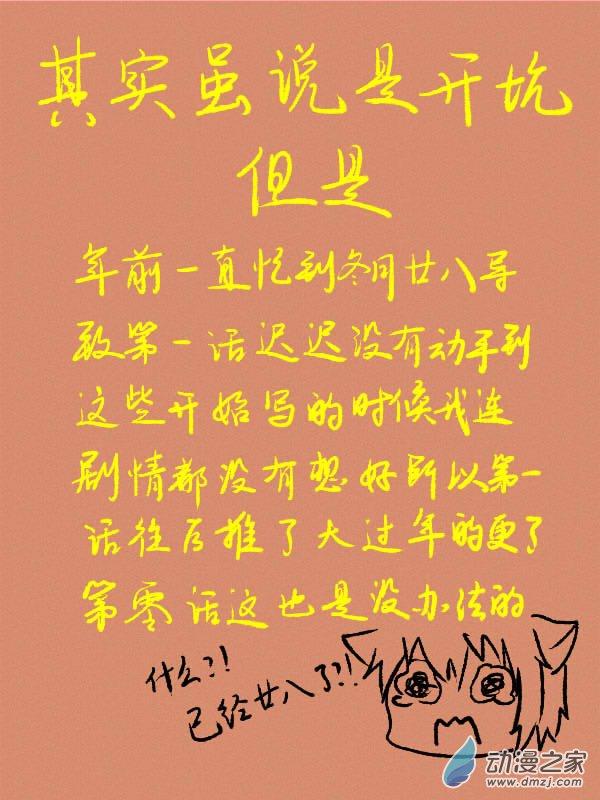 其实虽说是开坑
但是
年前一直忙到冬月廿八导
致第一话迟迟没有动手到
这些开始写的时候我连
剧情都没有想好所以第一
话往后推了大过年的更了
第零话这也是没办法的
什么?!
已经廿八了?!!
动漫之家
www.dmzj.com